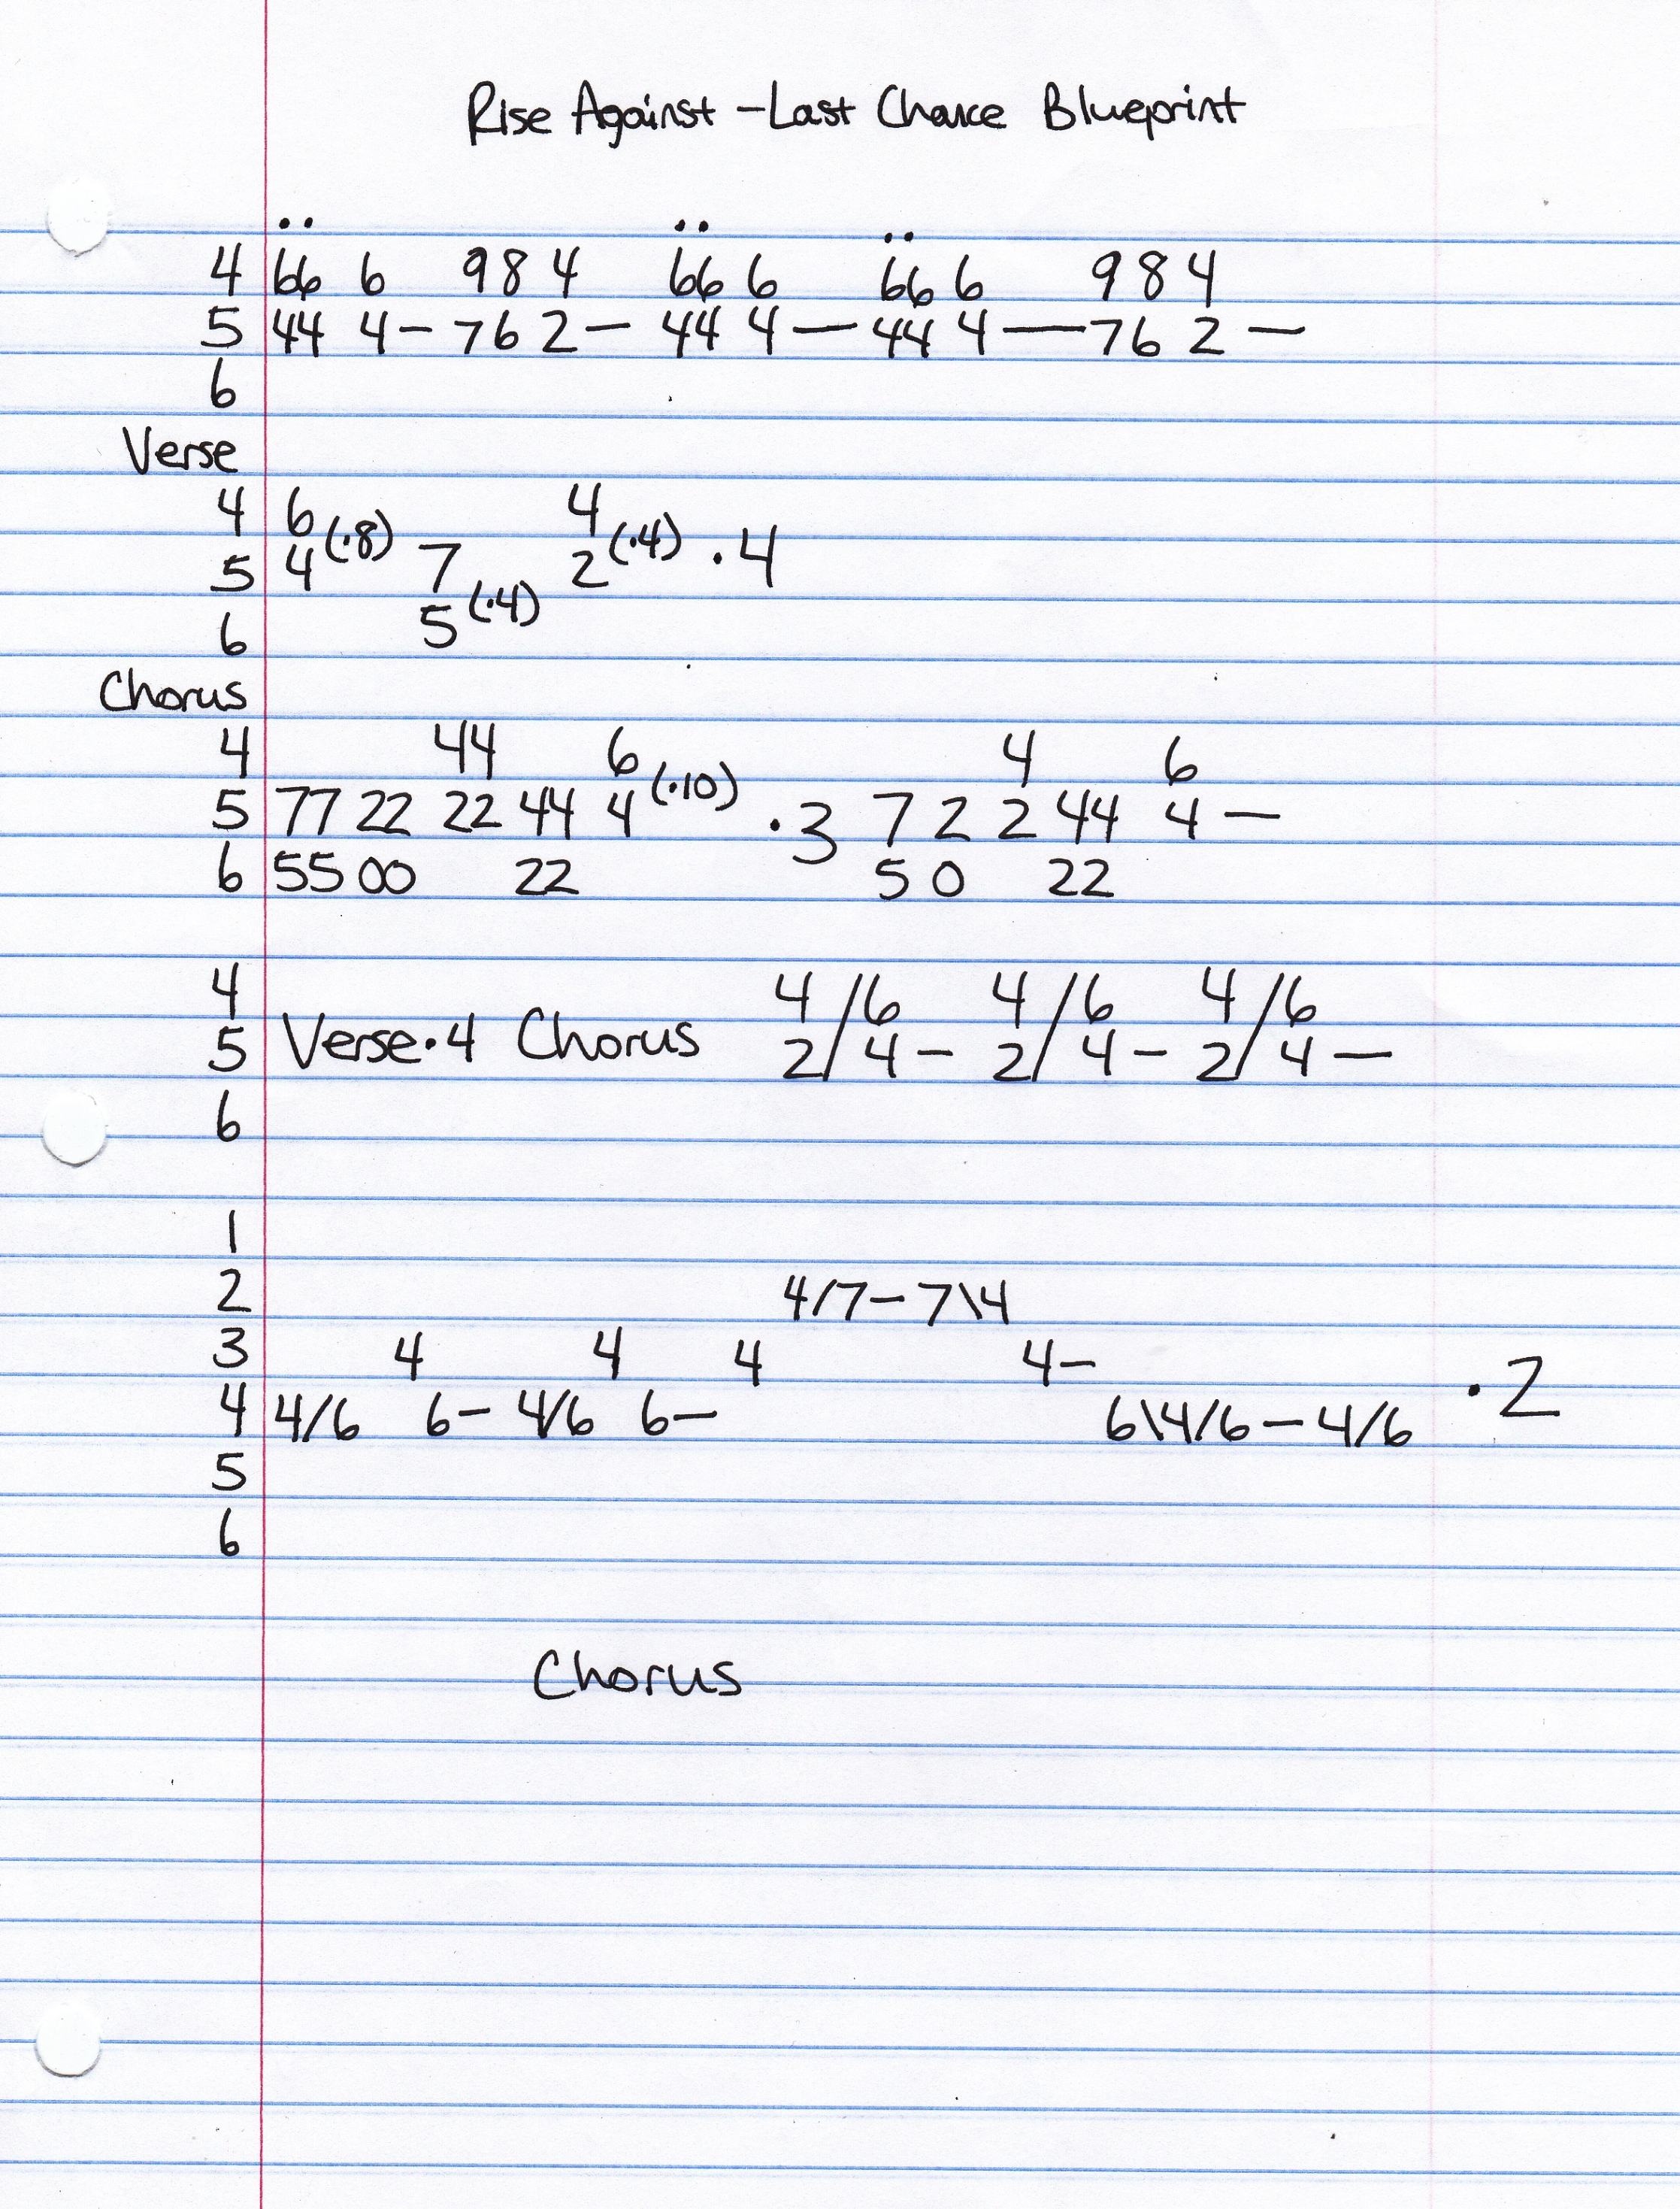 Rise Against - Last Chance Blueprint
.. .. ..
4 66 6 9 8 4 66 6 66 6 9 8 4
5 44 4 - 7 6 2 - 44 4 — 44 4 — 7 6 2 —
6
Verse
4 6 (·8) 4 (·4) · 4
5 4 7 2
6 5 (·4)
Chorus
4 44 6 (·10) 4 6
5 77 22 22 44 4 · 3 7 2 2 44 4 —
6 55 00 22 5 0 22
4 4 / 6 4 / 6 4 / 6
5 Verse · 4 Chorus 2 / 4 - 2 / 4 - 2 / 4 —
6
1
2 4/7 - 7\4
3 4 4 4 4-
4 4/6 6- 4/6 6- 6\4/6 - 4/6 · 2
5
6
Chorus